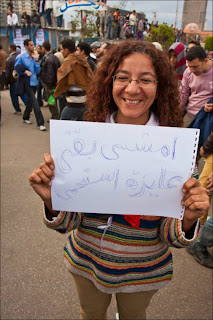 امشى بقى
عايزة استحمى